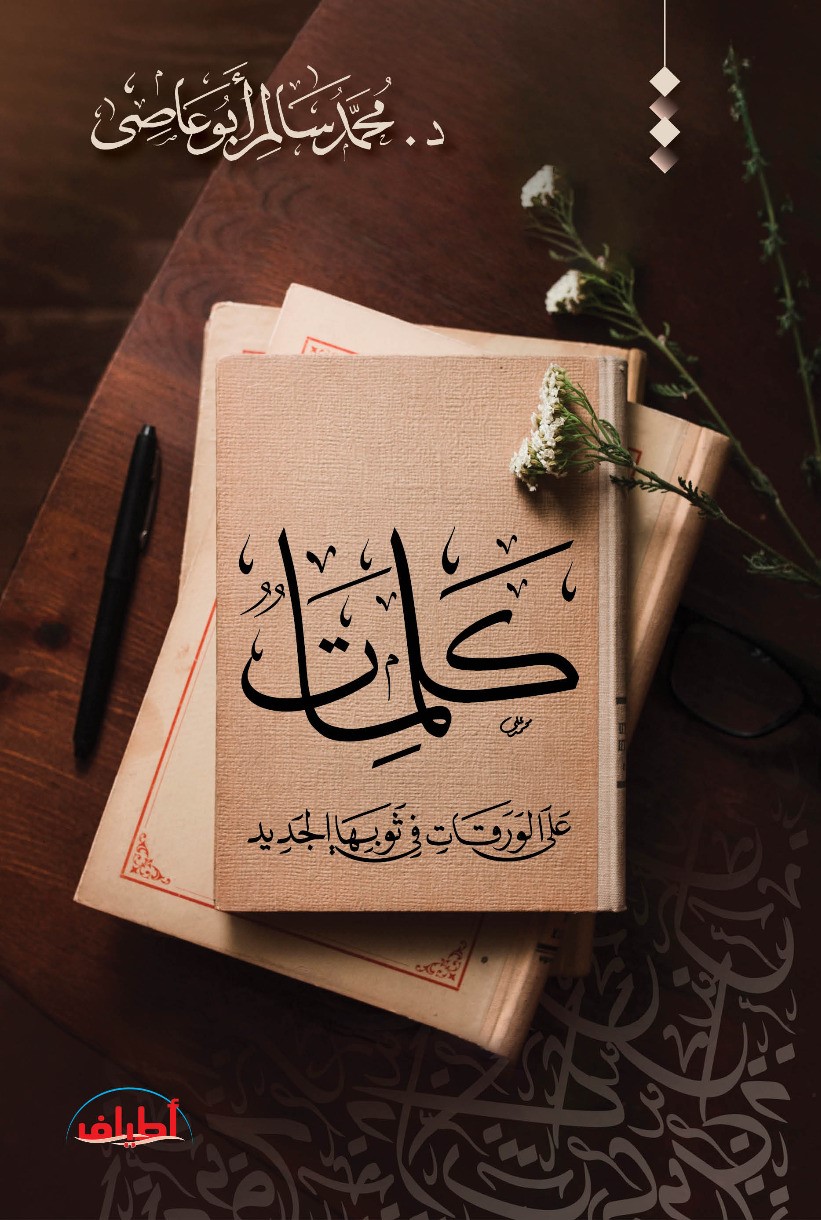 د. مُحَمَّد سَالِم أَبُو عَاصِي
كَلِمَاتٌ
محمد علي
عَلَى الوَرَقَاتِ فِي ثَوبِهَا الجَدِيد
أطياف